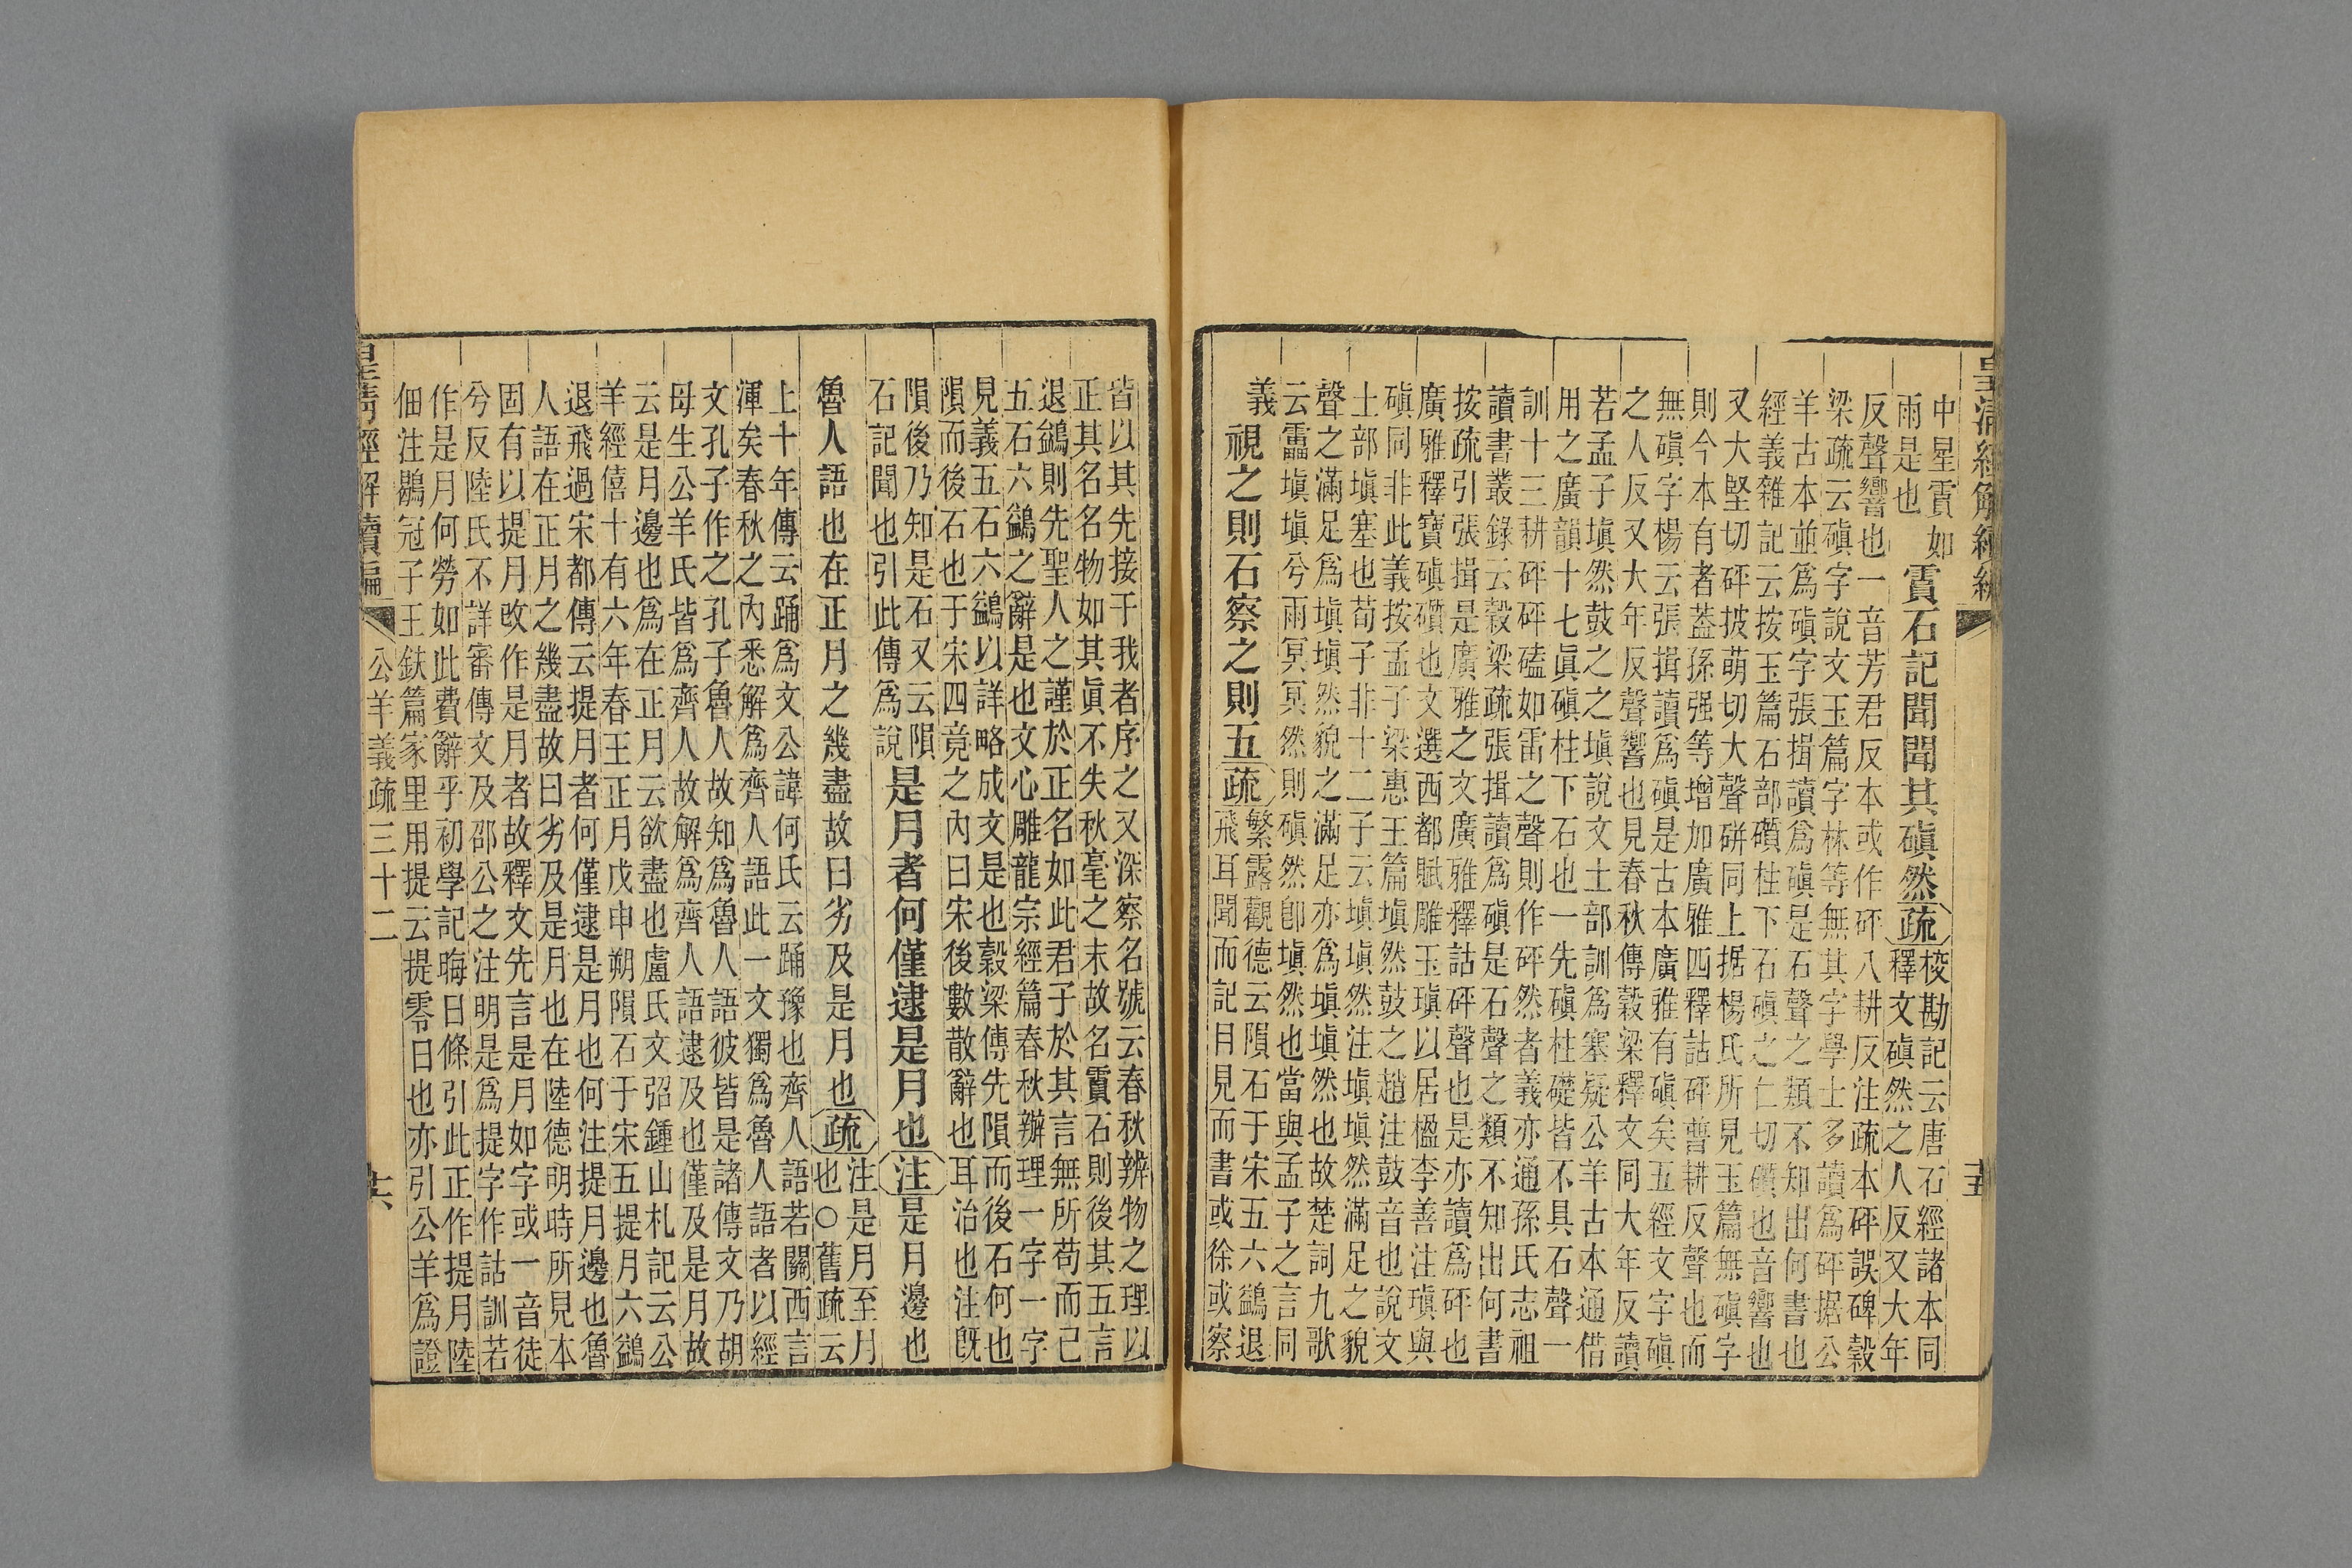 皇清經解續編
中星霣如
雨是也
霣石記聞聞其磌然
疏
挍勘記云唐石經諸本同
釋文磌然之人反又大年
反聲響也一音芳君反本或作砰八耕反注疏本砰誤碑穀
梁疏云磌字說文玉篇字林等無其字學士多讀爲砰据公
羊古本並爲磌字張揖讀爲磌是石聲之類不知出何書也
經義雜記云按玉篇石部礩柱下石磌之仁切礩也音響也
又大堅切砰披萌切大聲硑同上据楊氏所見玉篇無磌字
則今本有者葢孫强等增加廣雅四釋詁砰普耕反聲也而
無磌字楊云張揖讀爲磌是古本廣雅有磌矣五經文字磌
之人反又大年反聲響也見春秋傳穀梁釋文同大年反讀
若孟子塡然鼓之之塡說文土部訓爲塞疑公羊古本通借
用之廣韻十七眞磌柱下石也一先磌柱礎皆不具石聲一
訓十三耕砰砰磕如雷之聲則作砰然者義亦通孫氏志祖
讀書叢錄云穀梁疏張揖讀爲磌是石聲之類不知出何書
按疏引張揖是廣雅之文廣雅釋詁砰聲也是亦讀爲砰也
廣雅釋寶磌礩也文選西都賦雕玉瑱以居楹李善注瑱與
磌同非此義按孟子梁惠王篇塡然鼓之趙注鼓音也說文
土部塡塞也荀子非十二子云塡塡然注塡塡然滿足之貌
聲之滿足爲塡塡然貌之滿足亦爲塡塡然也故楚詞九歌
云靁塡塡兮雨冥冥然則磌然卽塡然也當與孟子之言同
義
視之則石察之則五
疏
繁露觀德云隕石于宋五六鷁退
飛耳聞而記目見而書或徐或察
皆以其先接于我者序之又深察名號云春秋辨物之理以
正其名名物如其眞不失秋毫之末故名霣石則後其五言
退鷁則先聖人之謹於正名如此君子於其言無所苟而已
五石六鷁之辭是也文心雕龍宗經篇春秋辨理一字一字
見義五石六鷁以詳略成文是也穀梁傳先隕而後石何也
隕而後石也于宋四竟之內曰宋後數散辭也耳治也注旣
隕後乃知是石又云隕
石記聞也引此傳爲說
是月者何僅逮是月也
注
是月邊也
魯人語也在正月之幾盡故曰劣及是月也
疏
注是月至月
也○舊疏云
上十年傳云踊爲文公諱何氏云踊豫也齊人語若關西言
渾矣春秋之內悉解爲齊人語此一文獨爲魯人語者以經
文孔子作之孔子魯人故知爲魯人語彼皆是諸傳文乃胡
母生公羊氏皆爲齊人故解爲齊人語逮及也僅及是月故
云是月邊也爲在正月云欲盡也盧氏文弨鍾山札記云公
羊經僖十有六年春王正月戊申朔隕石于宋五提月六鷁
退飛過宋都傳云提月者何僅逮是月也何注提月邊也魯
人語在正月之幾盡故曰劣及是月也在陸德明時所見本
固有以提月攺作是月者故釋文先言是月如字或一音徒
兮反陸氏不詳審傳文及邵公之注明是爲提字作詁訓若
作是月何勞如此費辭乎初學記晦日條引此正作提月陸
佃注鶡冠子王鈇篇家里用提云提零日也亦引公羊爲證
皇清經解續編
公羊義疏三十二